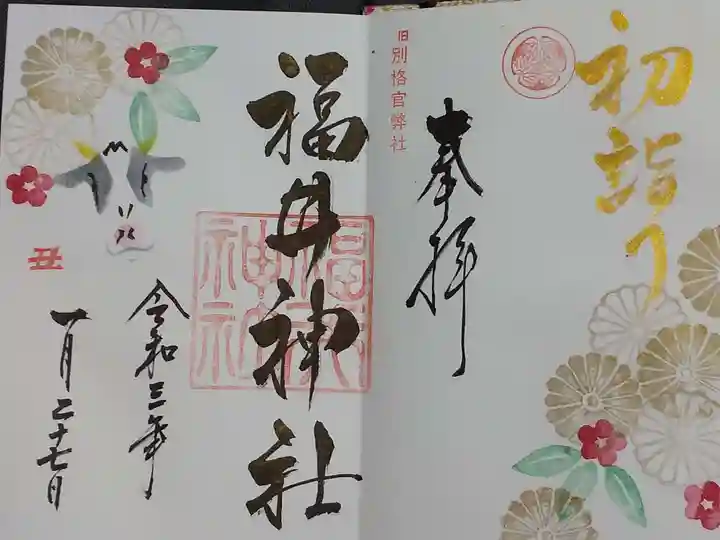 初詣り
旧別格官幣社
奉拝
福井神社
福井
神社
令和三年
一月二十七日
丑